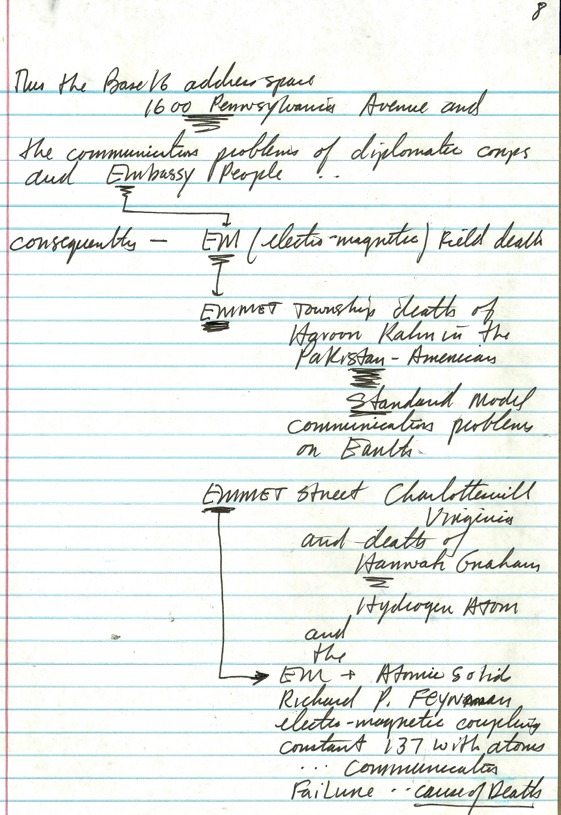 8
Thus the Base 16 address space
1600 Pennsylvania Avenue and
the communication problems of diplomatic corps
and Embassy People ..
consequently — EM (electro-magnetic) Field death
EMMET Township deaths of
Haroon Kahn in the
Pakistan - American
Standard Model
communication problems
on Earth.
EMMET Street Charlottesvill
Virginia
and death of
Hannah Graham
Hydrogen Atom
and
the
EM + Atomic Solid
Richard P. Feynman
electro-magnetic coupling
constant 137 with atoms
... Communication
Failure .. cause of Death